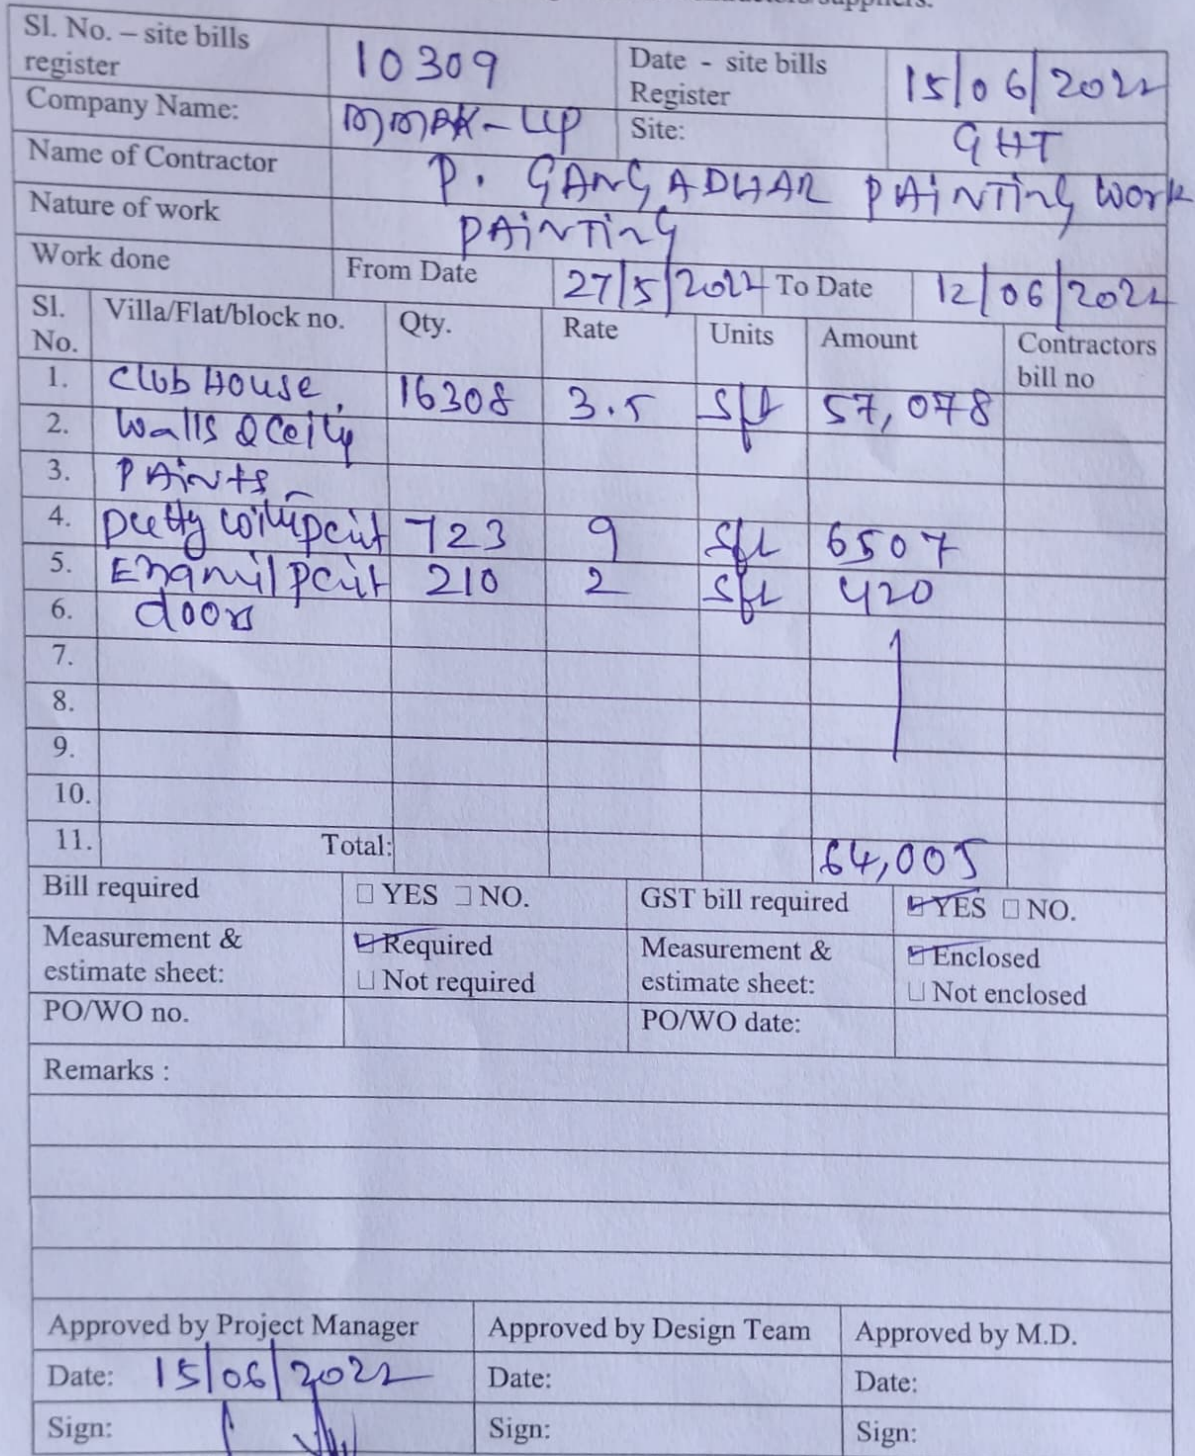 Sl. No. – site bills register 10309 Date - site bills Register 15/06/2022
Company Name: Site: GHT
Name of Contractor P. GANGADHAR PAiNTiNG Work
Nature of work PAiNTiNG
Work done From Date 27/5/2022 To Date 12/06/2022
Sl. No. Villa/Flat/block no. Qty. Rate Units Amount Contractors bill no
1. Club House, 16308 3.5 sft 57,078
2. Walls &
3. PAints
4. putty 723 9 sft 6507
5. 210 2 sft 420
6. doors
7.
8.
9.
10.
11. Total: 64,005
Bill required YES NO. GST bill required YES NO.
Measurement & estimate sheet: Required Not required Measurement & estimate sheet: Enclosed Not enclosed
PO/WO no. PO/WO date:
Remarks :
Approved by Project Manager Approved by Design Team Approved by M.D.
Date: 15/06/2022 Date: Date:
Sign: Sign: Sign: